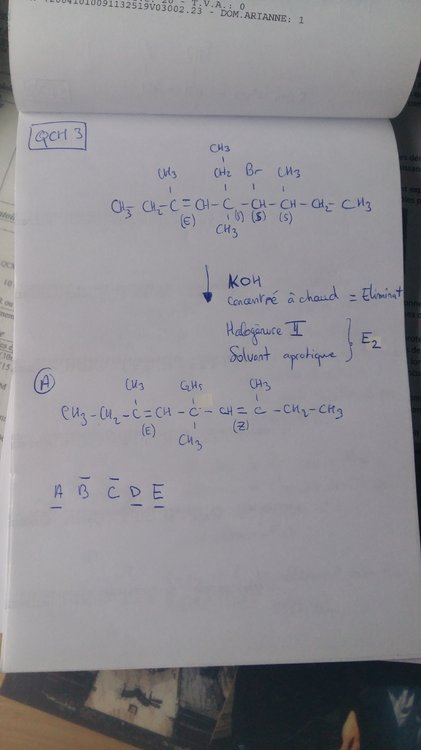 - T.V.A.: 0
42004101009113251 9V03002.23 - DOM.ARIANNE: 1
QCM.3
CH3
CH3 CH2 Br CH3
CH3-CH2-C=CH-C-CH-CH-CH2-CH3
(E) (S) (S) (S)
CH3
KOH
concentré à chaud = Eliminat°
Halogénure II
Solvant aprotique } E2
A
CH3 C2H5 CH3
CH3-CH2-C=CH-C-CH=C-CH2-CH3
(E) CH3 (Z)
A B C D E